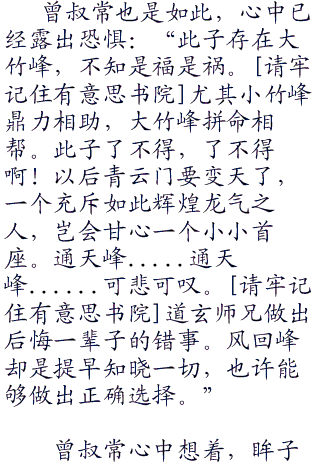 曾叔常也是如此，心中已
经露出恐惧：“此子存在大
竹峰，不知是福是祸。[请牢
记住有意思书院]尤其小竹峰
鼎力相助，大竹峰拼命相
帮。此子了不得，了不得
啊！以后青云门要变天了，
一个充斥如此辉煌龙气之
人，岂会甘心一个小小首
座。通天峰......通天
峰......可悲可叹。[请牢记
住有意思书院]道玄师兄做出
后悔一辈子的错事。风回峰
却是提早知晓一切，也许能
够做出正确选择。”
曾叔常心中想着，眸子